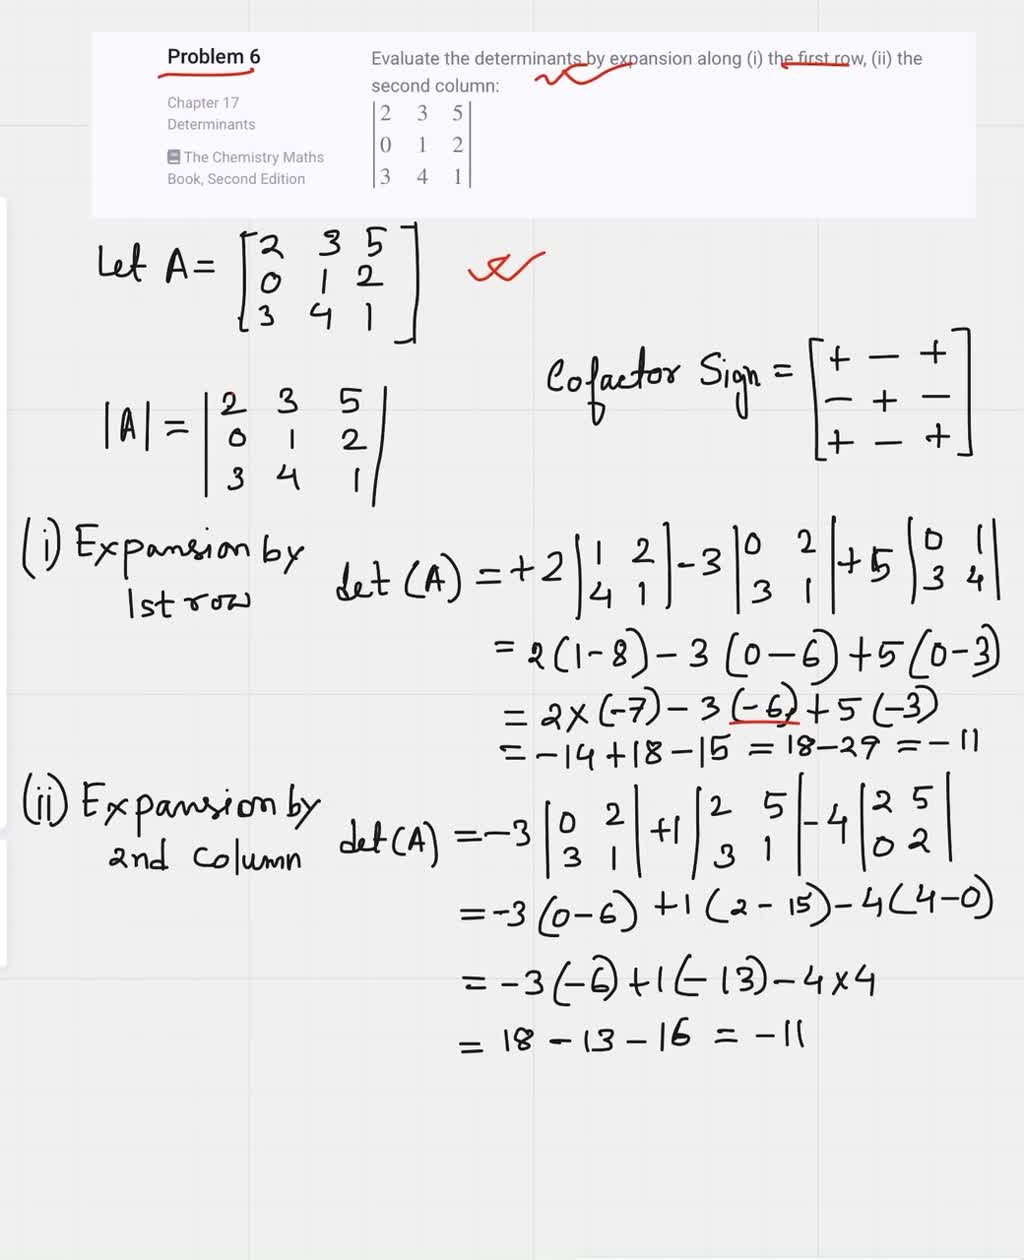 Problem 6
Chapter 17
Determinants
The Chemistry Maths
Book, Second Edition
Evaluate the determinants by expansion along (i) the first row, (ii) the
second column:
|2 3 5|
|0 1 2|
|3 4 1|
Let A = [2 3 5
0 1 2
3 4 1]
Cofactor Sign = [+ − +
− + −
+ − +]
|A| = |2 3 5|
|0 1 2|
|3 4 1|
(i) Expansion by
1st row
det (A) = +2 |1 2; 4 1| − 3 |0 2; 3 1| + 5 |0 1; 3 4|
= 2(1−8) − 3 (0−6) + 5 (0−3)
= 2×(−7) − 3 (−6) + 5 (−3)
= −14+18−15 = 18−29 = −11
(ii) Expansion by
2nd column
det (A) = −3 |0 2; 3 1| +1 |2 5; 3 1| − 4 |2 5; 0 2|
= −3 (0−6) +1 (2−15) − 4 (4−0)
= −3 (−6) +1 (−13) − 4×4
= 18 − 13 − 16 = −11